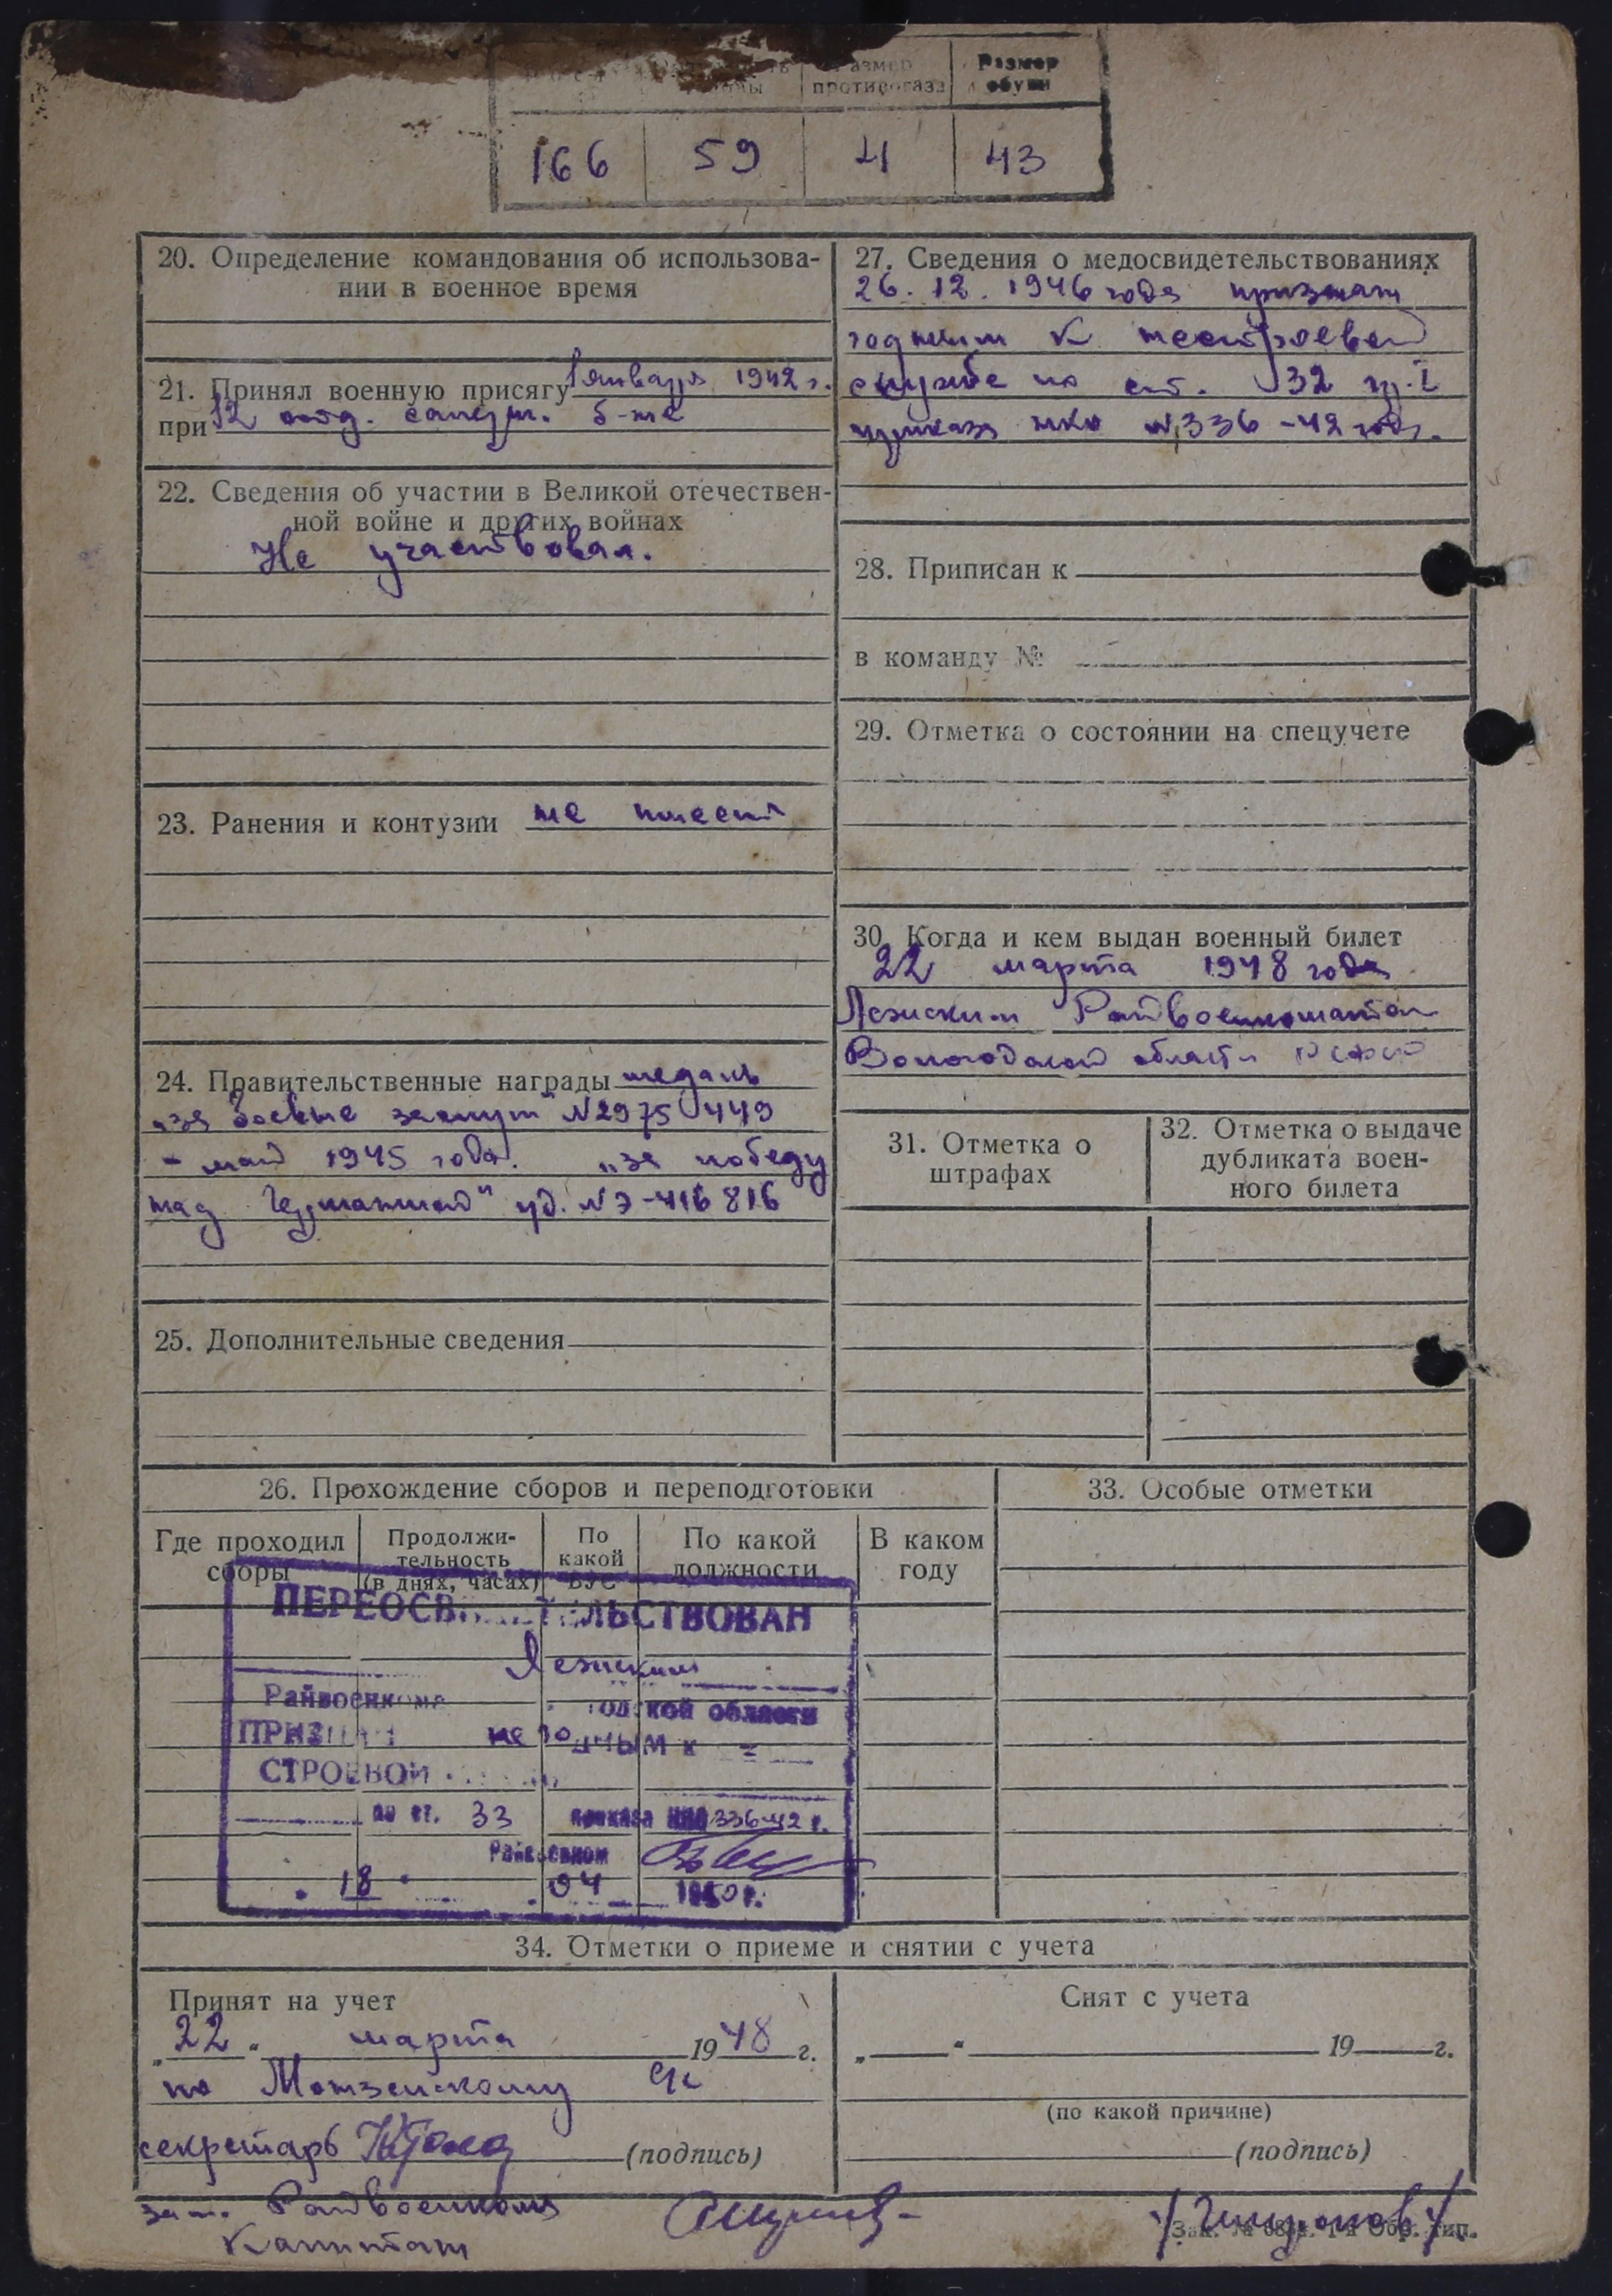 Размер противогаза
Размер обуви
166 59 4 43
20. Определение командования об использова-
нии в военное время
21. Принял военную присягу 1 января 1942 г.
при 12 отд. саперн. б-не
22. Сведения об участии в Великой отечествен-
ной войне и других войнах
Не участвовал.
23. Ранения и контузии не имеет
24. Правительственные награды медаль
„за боевые заслуги" N 2975449
- май 1945 года. „за победу
над Германией" уд. N Э-416816
25. Дополнительные сведения
27. Сведения о медосвидетельствованиях
26. 12. 1946 года признан
годным к нестроевой
службе по ст. 32 гр. I
приказа нко N 336 -42 года.
28. Приписан к
в команду №
29. Отметка о состоянии на спецучете
30. Когда и кем выдан военный билет
22 марта 1948 года
Лежским Райвоенкоматом
Вологодской области РСФСР
31. Отметка о
штрафах
32. Отметка о выдаче
дубликата воен-
ного билета
26. Прохождение сборов и переподготовки
Где проходил
сборы
Продолжи-
тельность
(в днях, часах)
По
какой
ВУС
По какой
должности
В каком
году
ПЕРЕОСВИДЕТЕЛЬСТВОВАН
Лежским
Райвоенкома области
ПРИЗНАН не годным к
СТРОЕВОЙ
по ст. 33 приказа НКО 336-42 г.
Райвоенком
18 04 1950 г.
33. Особые отметки
34. Отметки о приеме и снятии с учета
Принят на учет
„22" марта 1948 г.
по
секретарь (подпись)
зам. Райвоенкома
Капитан
Снят с учета
„ " 19 г.
(по какой причине)
(подпись)
Зак. № Обр. тип.